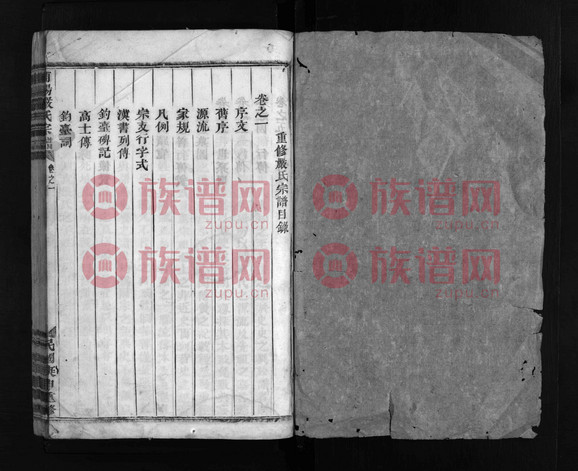 重修嚴氏宗譜目錄
卷之一
序文
舊序
源流
家規
凡例
宗支行字式
漢書列傳
釣臺碑記
高士傳
釣臺詞
嚴氏宗譜
卷之一
族谱网
zupu.cn
族谱网
zupu.cn
族谱网
zupu.cn
族谱网
zupu.cn